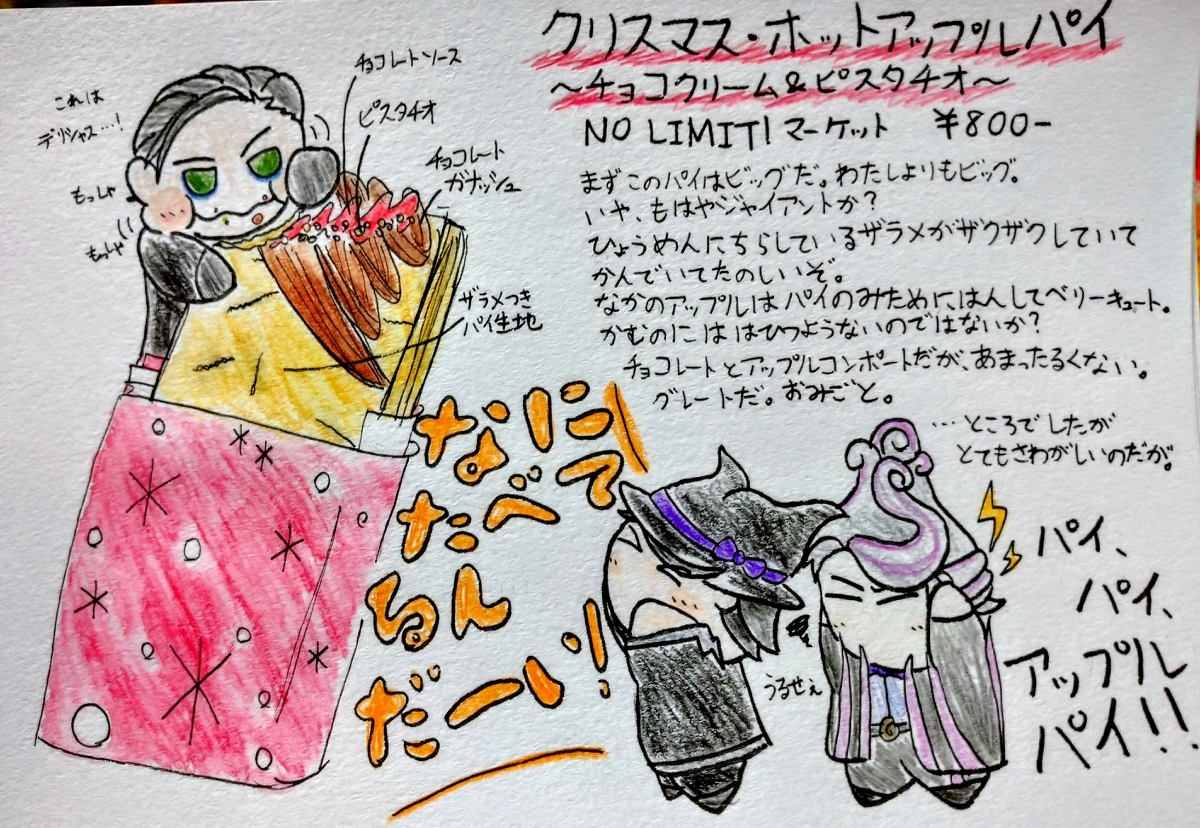 クリスマス・ホットアップルパイ
～チョコクリーム&ピスタチオ～
NO LIMIT!マーケット ¥800-
まずこのパイはビッグだ。わたしよりもビッグ。
いや、もはやジャイアントか?
ひょうめんにちらしているザラメがザクザクしていて
かんでいてたのしいぞ。
なかのアップルはパイのみためにはんしてベリーキュート。
かむのにははひつようないのではないか?
チョコレートとアップルコンポートだが、あまったるくない。
グレートだ。おみごと。
…ところでしたが
とてもさわがしいのだが。
チョコレートソース
ピスタチオ
チョコレート
ガナッシュ
ザラメつき
パイ生地
これは
デリシャス…!
もっしゃ
もっしゃ
なに
たべて
るん
だーい!
うるせぇ
パイ、
パイ、
アップル
パイ!!